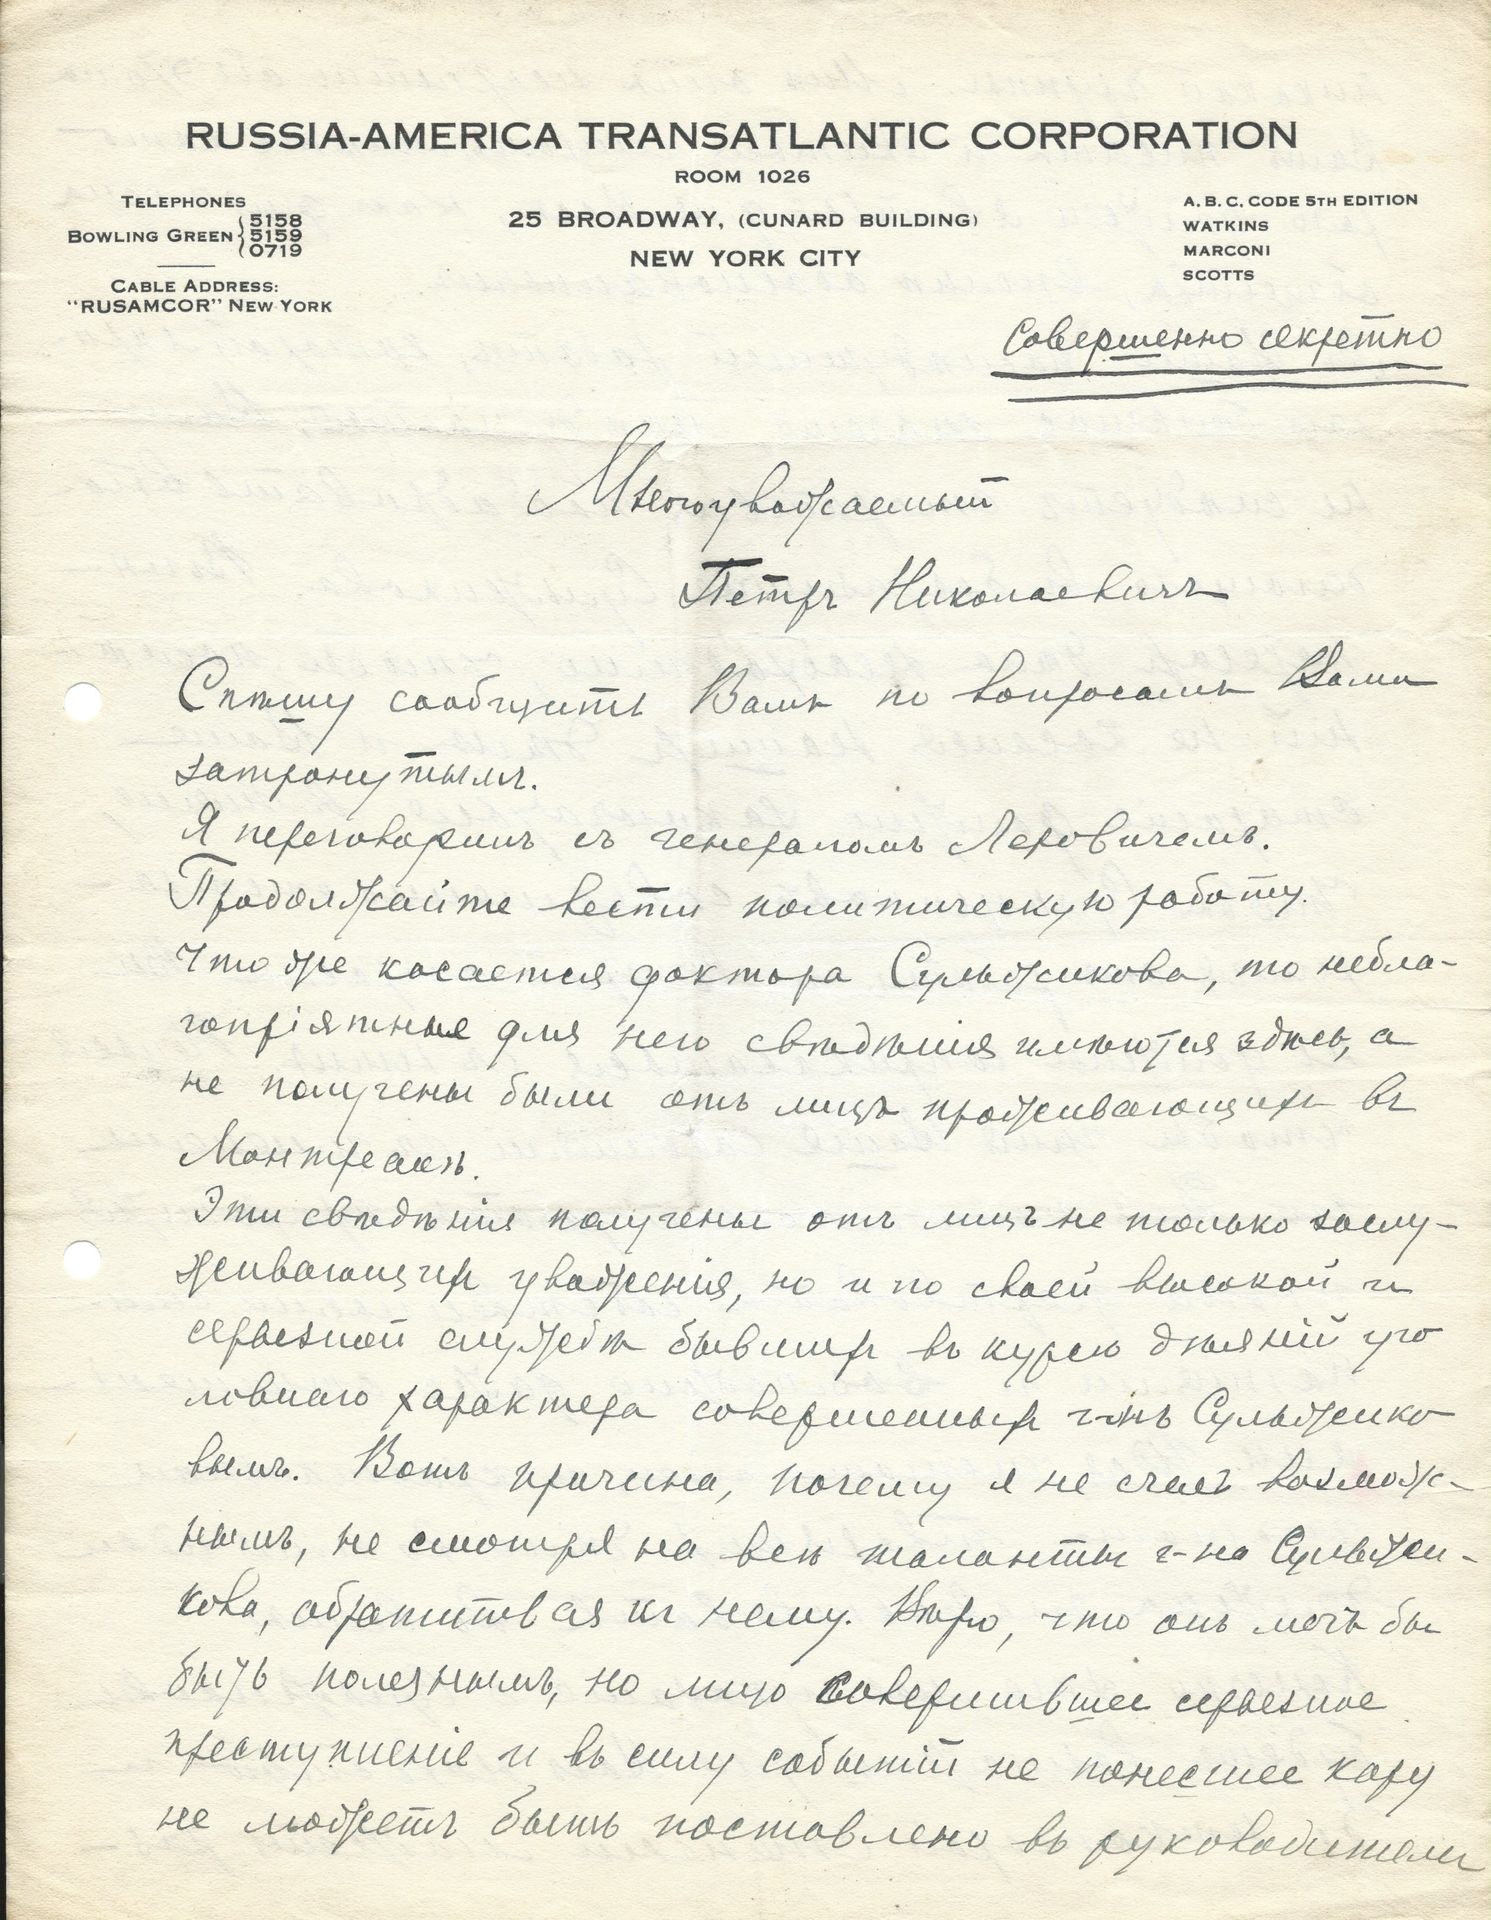 RUSSIA-AMERICA TRANSATLANTIC CORPORATION
ROOM 1026
25 BROADWAY, (CUNARD BUILDING)
NEW YORK CITY
TELEPHONES
BOWLING GREEN { 5158
5159
0719
CABLE ADDRESS:
"RUSAMCOR" NEW YORK
A. B. C. CODE 5TH EDITION
WATKINS
MARCONI
SCOTTS
Совершенно секретно
Многоуважаемый
Петръ Николаевичъ
Спѣшу сообщить Вамъ по вопросамъ Вами
затронутымъ.
Я переговорилъ съ генераломъ Леховичемъ.
Продолжайте вести политическую работу.
Что же касается доктора Сульжикова, то небла-
гопріятныя для него свѣдѣнія имѣются здѣсь, а
не получены были отъ лицъ проживающихъ въ
Монтреалѣ.
Эти свѣдѣнія получены отъ лицъ не только заслу-
живающихъ уваженія, но и по своей высокой и
серьезной службѣ бывшихъ въ курсѣ дѣяній уго
ловнаго характера совершенныхъ г-нъ Сульжико
вымъ. Вотъ причина, почему я не счелъ возмож-
нымъ, не смотря на всѣ таланты г-на Сульжи-
кова, обратиться къ нему. Вѣрю, что онъ могъ бы
быть полезнымъ, но лицо совершившее серьезное
преступленіе и въ силу событій не понесшее кару
не можетъ быть поставлено въ руководители